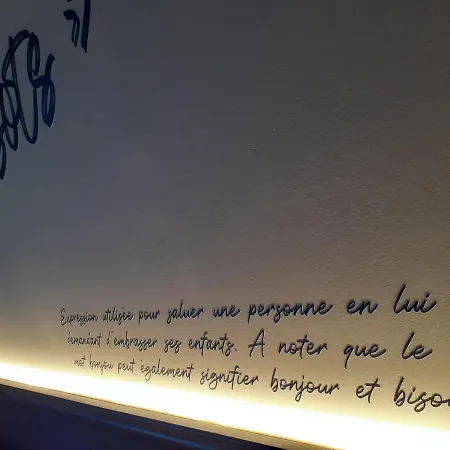 Expression utilisée pour saluer une personne en lui
demandant d'embrasser ses enfants. A noter que le
mot bonjou peut également signifier bonjour et